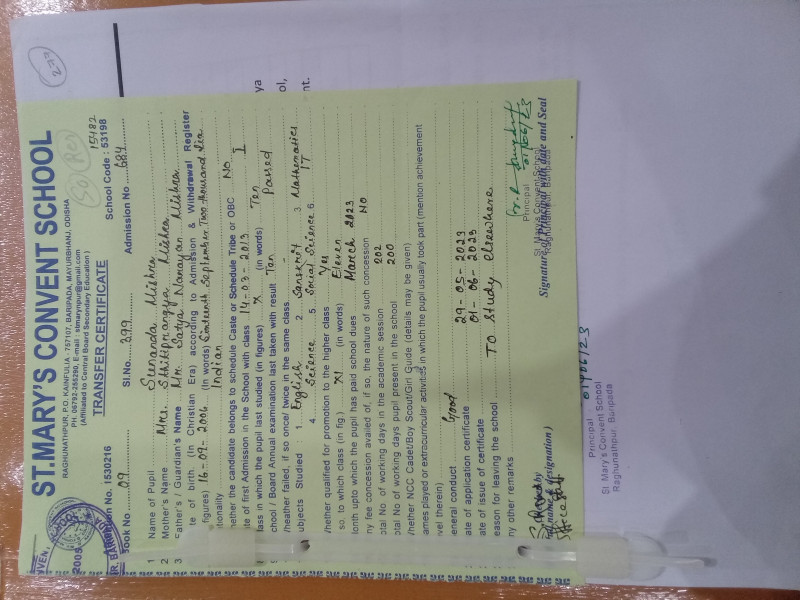 277
ST.MARY'S CONVENT SCHOOL
RAGHUNATHPUR, P.O. KAINFULIA, 757107, BARIPADA, MAYURBHANJ, ODISHA
PH: 06792-255290, E-mail : stmarynpur@gmail.com
(Affiliated to Central Board Secondary Education)
TRANSFER CERTIFICATE
15482
No : 1530216
School Code : 53198
Book No 09 Sl.No 399 Admission No 684
1 Name of Pupil Sunanda Mishra
2 Mother's Name Mrs. Sthitiprangya Mishra
3 Father's / Guardian's Name Mr. Satya Narayan Mishra
te of birth (In Christian Era) according to Admission & Withdrawal Register
figures) 16-09-2006 (In words) Sixteenth September Two thousand Six
tionality Indian
hether the candidate belongs to schedule Caste or Schedule Tribe or OBC No
te of first Admission in the School with class 14-03-2013 I
lass in which the pupil last studied (in figures) X (in words) Ten
chool / Board Annual examination last taken with result Ten Passed
hether failed, if so once/ twice in the same class -
ubjects Studied : 1 English 2 Sanskrit 3 Mathematics
4 Science 5 Social Science 6 IT
hether qualified for promotion to the higher class Yes
so, to which class (in fig.) XI (in words) Eleven
onth upto which the pupil has paid school dues March 2023
ny fee concession availed of, if so, the nature of such concession NO
otal No of working days in the academic session 202
otal No of working days pupil present in the school 200
hether NCC Cadet/Boy Scout/Girl Guide (details may be given)
ames played or extracurricular activities in which the pupil usually took part (mention achievement
vel therein)
eneral conduct Good
ate of application certificate 29-05-2023
ate of issue of certificate 01-06-2023
eason for leaving the school TO Study elsewhere
ny other remarks
01/06/23
Principal
St. Mary's Convent School
Raghunathpur, Baripada
Signature of Principal with date and Seal
01/06/23
Principal
St. Mary's Convent School
Raghunathpur, Baripada